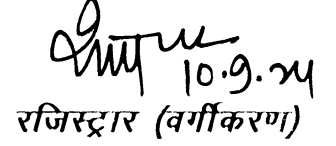 10.9.24
रजिस्ट्रार (वर्गीकरण)